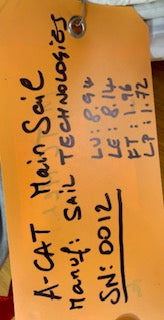 A-CAT Main Sail
Manuf: SAIL TECHNOLOGIES
LU: 8.94
LE: 8.14
FT: 1.96
LP: 1.72
SN: 0012